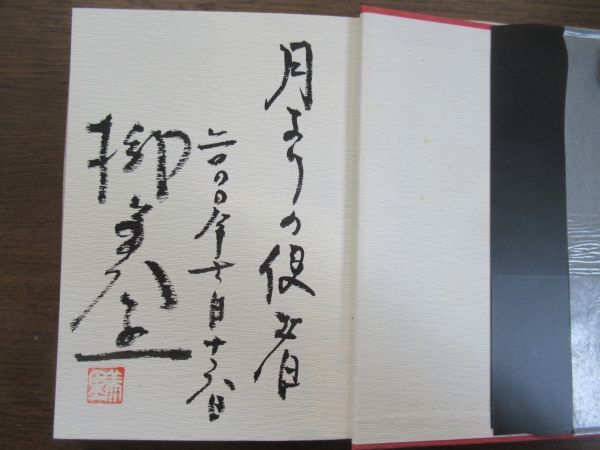 月よりの使者
二〇〇〇年七月十六日
柳美里
美里